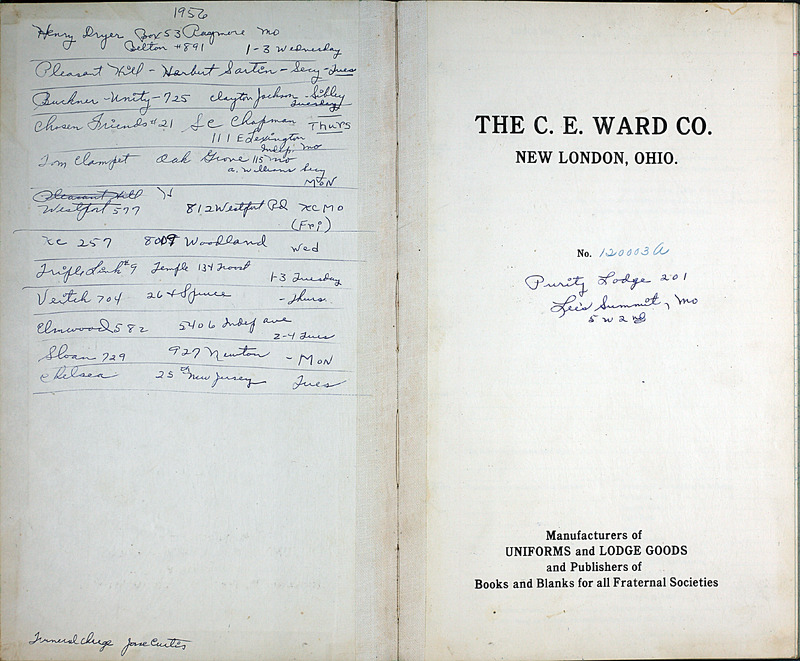 1956
Henry Dryer Box 53 Raymore Mo
Belton #891 1-3 Wednesday
Pleasant Hill - Herbert Sartin - Secy - Tues
Buckner - Unity - 725 Clayton Jackson - Sibley
Tuesday
Chosen Friends #21 L C Chapman Thurs
111 E Lexington
Indep. Mo
Tom Clampet Oak Grove 115 Mo
a. Williams Secy
MON
Pleasant Hill
Westport 577 812 Westport Rd KC MO
(Fri)
KC 257 8009 Woodland Wed
Triple Link #9 Temple 134 Troost 1-3 Tuesday
Veitch 704 26 & Spruce - Thurs.
Elmwood 582 5406 Indep ave
2-4 Tues
Sloan 729 927 Newton - MON
Chelsea 25 New Jersey Tues
Funeral Jose Curtis
THE C. E. WARD CO.
NEW LONDON, OHIO.
No. 120003A
Purity Lodge 201
Lee's Summit, Mo
5 W 2nd
Manufacturers of
UNIFORMS and LODGE GOODS
and Publishers of
Books and Blanks for all Fraternal Societies